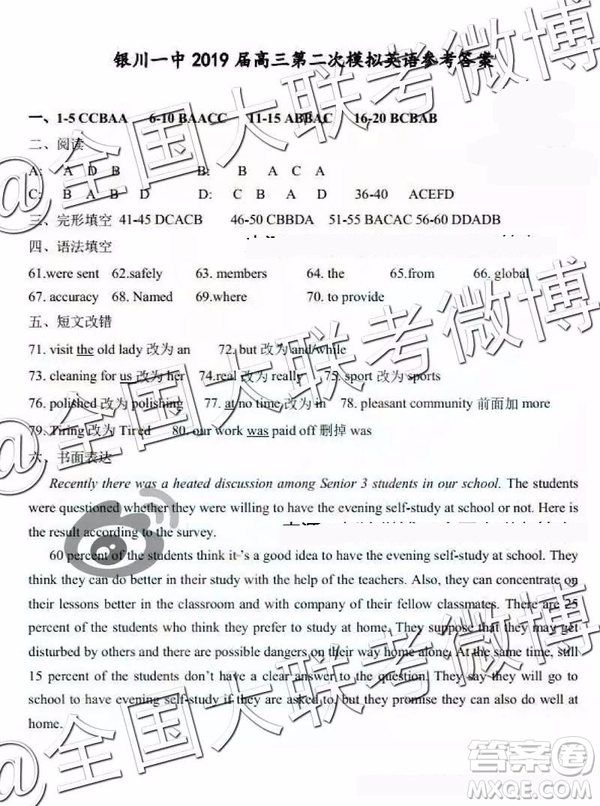 银川一中 2019 届高三第二次模拟英语参考答案
一、1-5 CCBAA 6-10 BAACC 11-15 ABBAC 16-20 BCBAB
二、阅读
A: A D B B: B A C A
C: B A B D D: C A B D 36-40 ACEFD
三、完形填空 41-45 DCACB 46-50 CBBDA 51-55 BACAC 56-60 DDADB
四、语法填空
61.were sent 62.safely 63. members 64. the 65.from 66. global
67. accuracy 68. Named 69. where 70. to provide
五、短文改错
71. visit the old lady 改为 an 72. but 改为 and/while
73. cleaning for us 改为 her 74.real 改为 really 75. sport 改为 sports
76. polished 改为 polishing 77. at no time 改为 in 78. pleasant community 前面加 more
79. Tiring 改为 Tired 80. our work was paid off 删掉 was
六、书面表达
Recently there was a heated discussion among Senior 3 students in our school. The students
were questioned whether they were willing to have the evening self-study at school or not. Here is
the result according to the survey.
60 percent of the students think it's a good idea to have the evening self-study at school. They
think they can do better in study with the help of the teachers. Also, they can concentrate on
their lessons better in the classroom and with company of their fellow classmates. There are 25
percent of the students who think they prefer to study at home. They suppose they may get
disturbed by others and there are possible dangers on their way home alone. At the same time, still
15 percent of the students don't have a clear answer to the question. They say they will go to
school to have evening self-study if they are asked to, but they can also do well at
home.
@全国大联考微博
@全国大联考微博
@全国大联考微博
答案圈
MXQE.COM